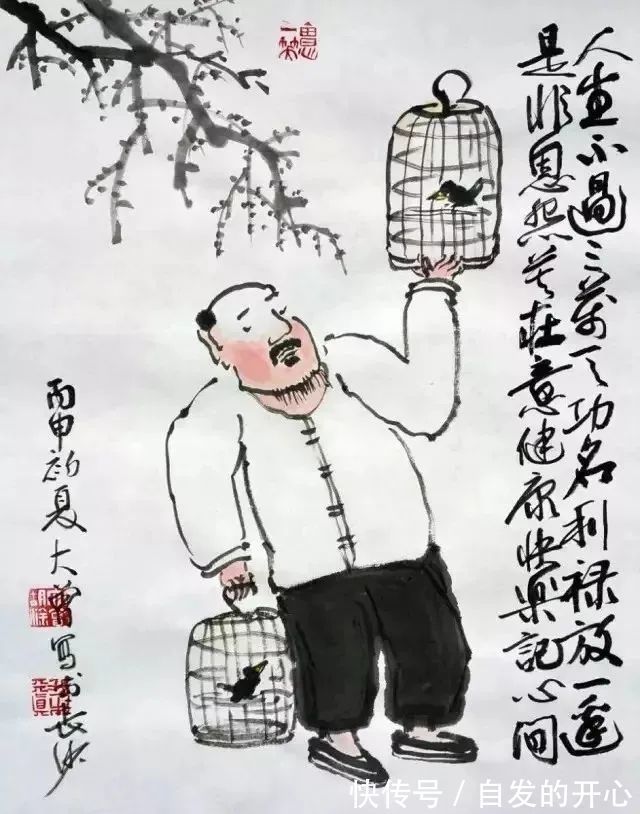 人生不過三萬天功名利禄放一邊
是非恩怨莫在意健康快樂記心间
丙申初夏大曾写於长沙
快传号 / 自发的开心